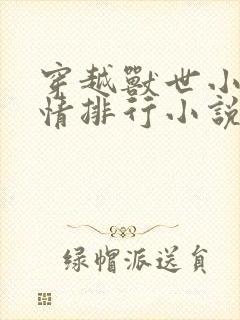 穿越獸世小
情排行小說
绿帽派送員